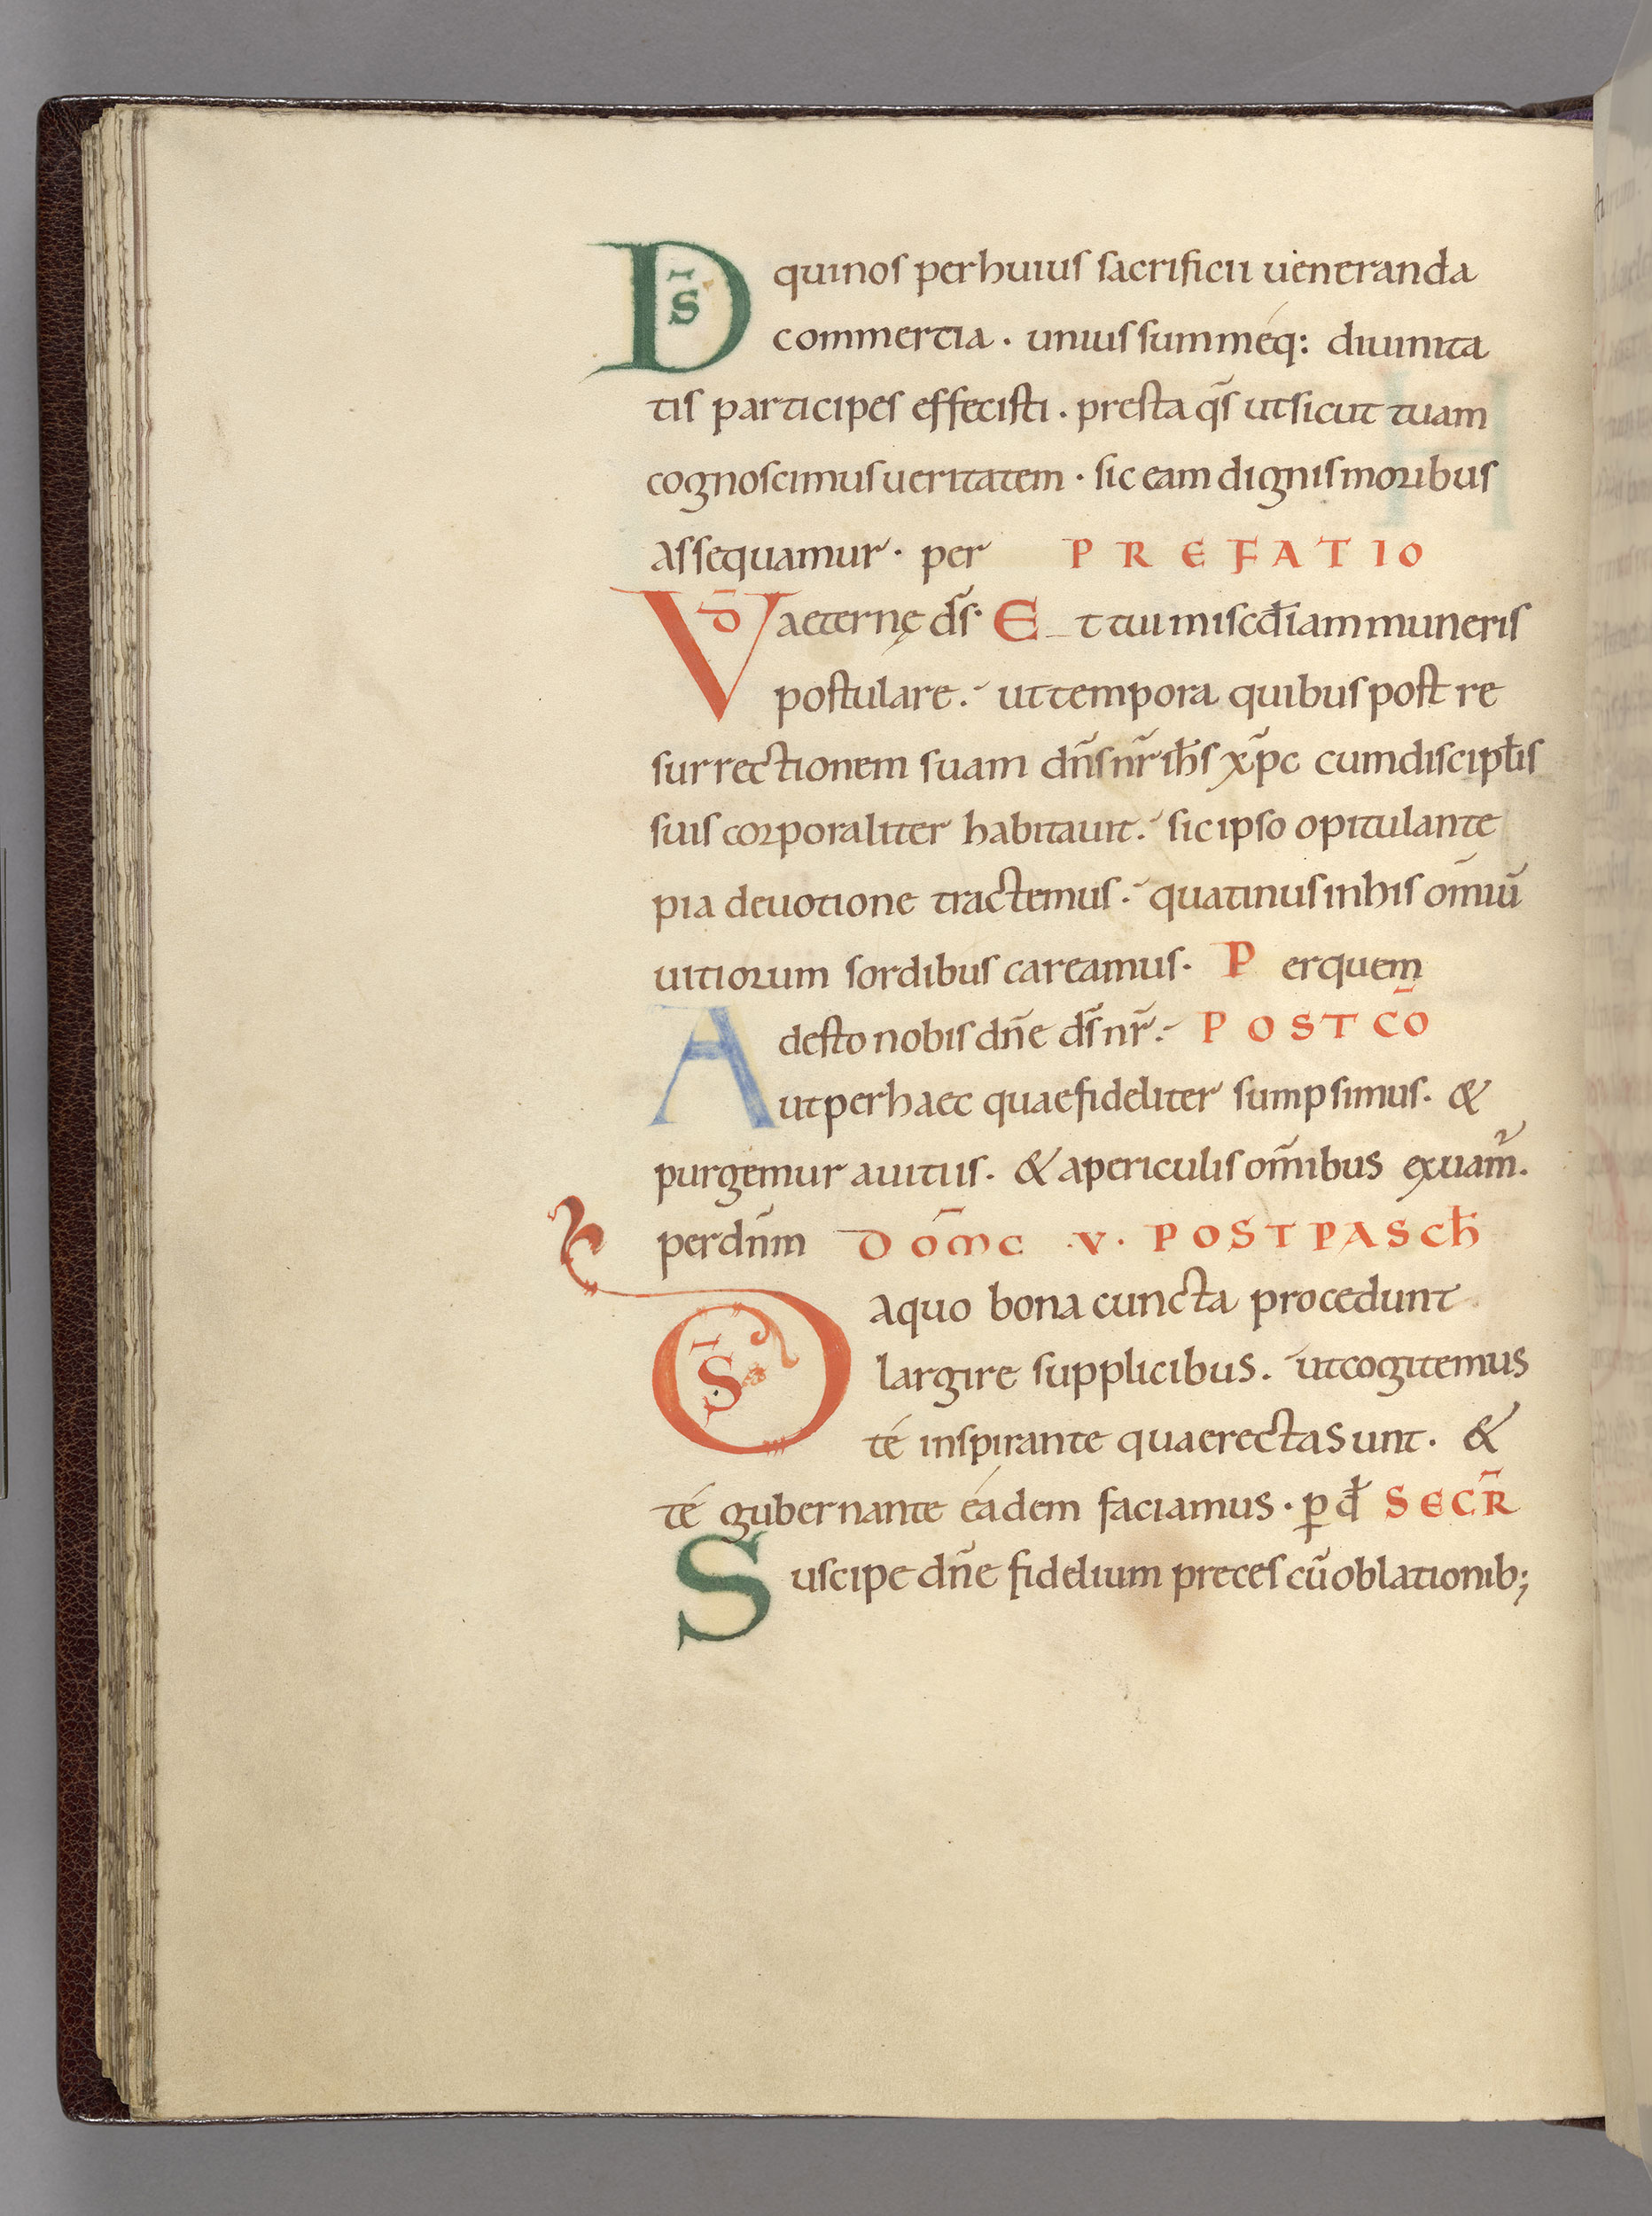 D̄S qui nos per huius sacrificii ueneranda
commertia · unius summéq: diuinita
tis participes effecisti · presta q̄s ut sicut tuam
cognoscimus ueritatem · sic eam dignis moribus
assequamur · per PREFATIO
VD̄ aeternę d̄s· Et tui misc̄diam muneris
postulare.- ut tempora quibus post re
surrectionem suam dn̄s nr̄ ih̄s xp̄c cum discipłis
suis corporaliter habitauit.- sic ipso opitulante
pia deuotione tractemus.- quatinus in his om̄iū
uitiorum sordibus careamus· Per quem
Adesto nobis dn̄e d̄s nr̄.- POST CŌ
ut per haec quae fideliter sumpsimus. &
purgemur a uitiis. & a periculis om̄ibus exuam̄.
per dn̄m DOM̄C ·V· POST PASCH̄
D̄S a quo bona cuncta procedunt
largire supplicibus. ut cogitemus
té inspirante quae recta sunt. &
té gubernante éadem faciamus · ꝑ đ SECR̄
Suscipe dn̄e fidelium preces cū oblationib;